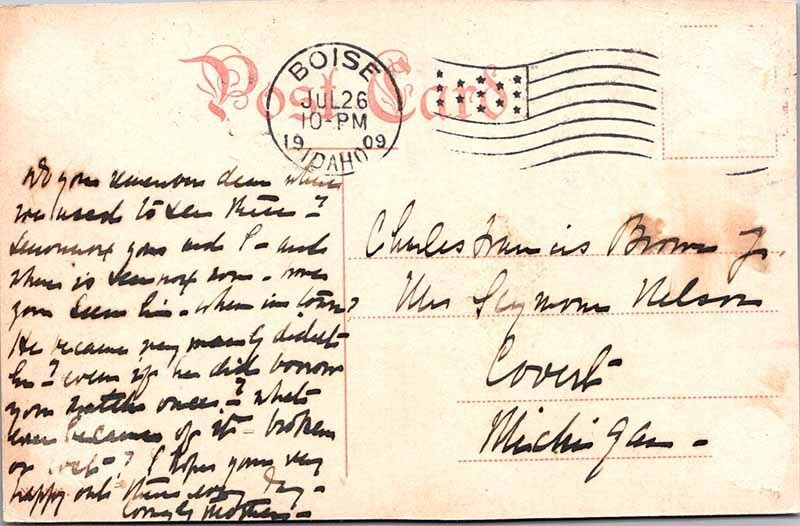 Post Card
BOISE
JUL 26
10-PM
1909
IDAHO
Do you remember dear when
we used to see them?
you and I - and
where is now - have
you seen him - when in town?
He became very manly didn't
he? even if he did borrow
your once? what's
ever became of it - broken
or lost? I hope you're very
happy out there every day -
Lovingly Mother -
Charles Francis Brown Jr.
Mrs Seymour Nelson
Covert
Michigan -